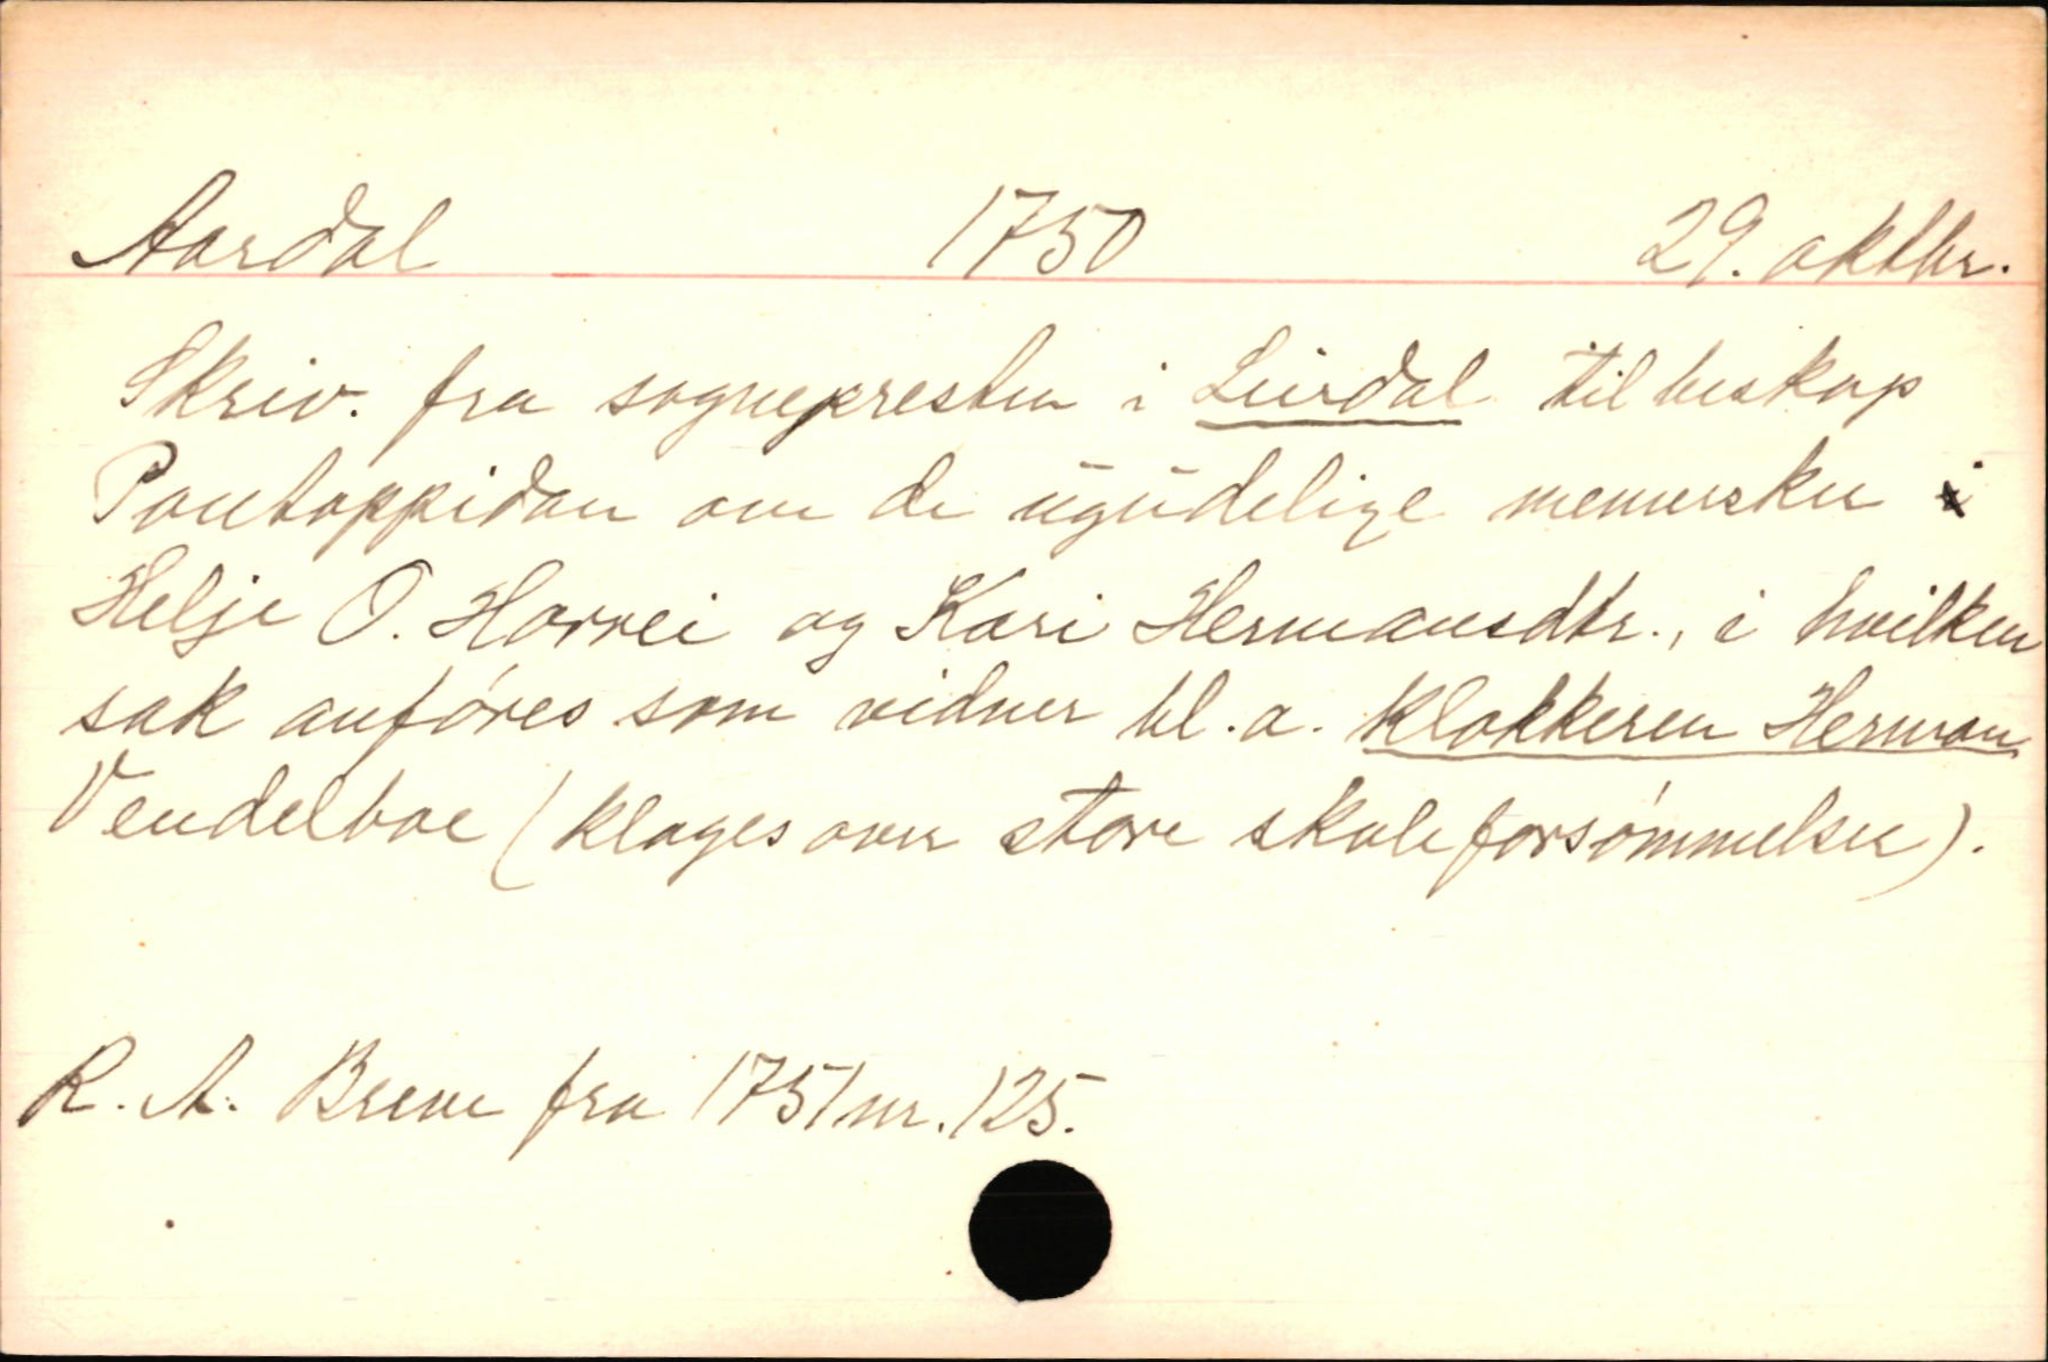 Aardal 1750 29. oktbr.
Skriv. fra sognepresten i Leirdal til biskop
Pontoppidan om de ugudelige mennesker
Helje O. Horvei og Kari Hermansdtr., i hvilken
sak anføres som vidner bl. a. klokkeren Herman
Vendelboe (klages over store skoleforsømmelser).
R. A. Breve fra 1751 nr. 125.